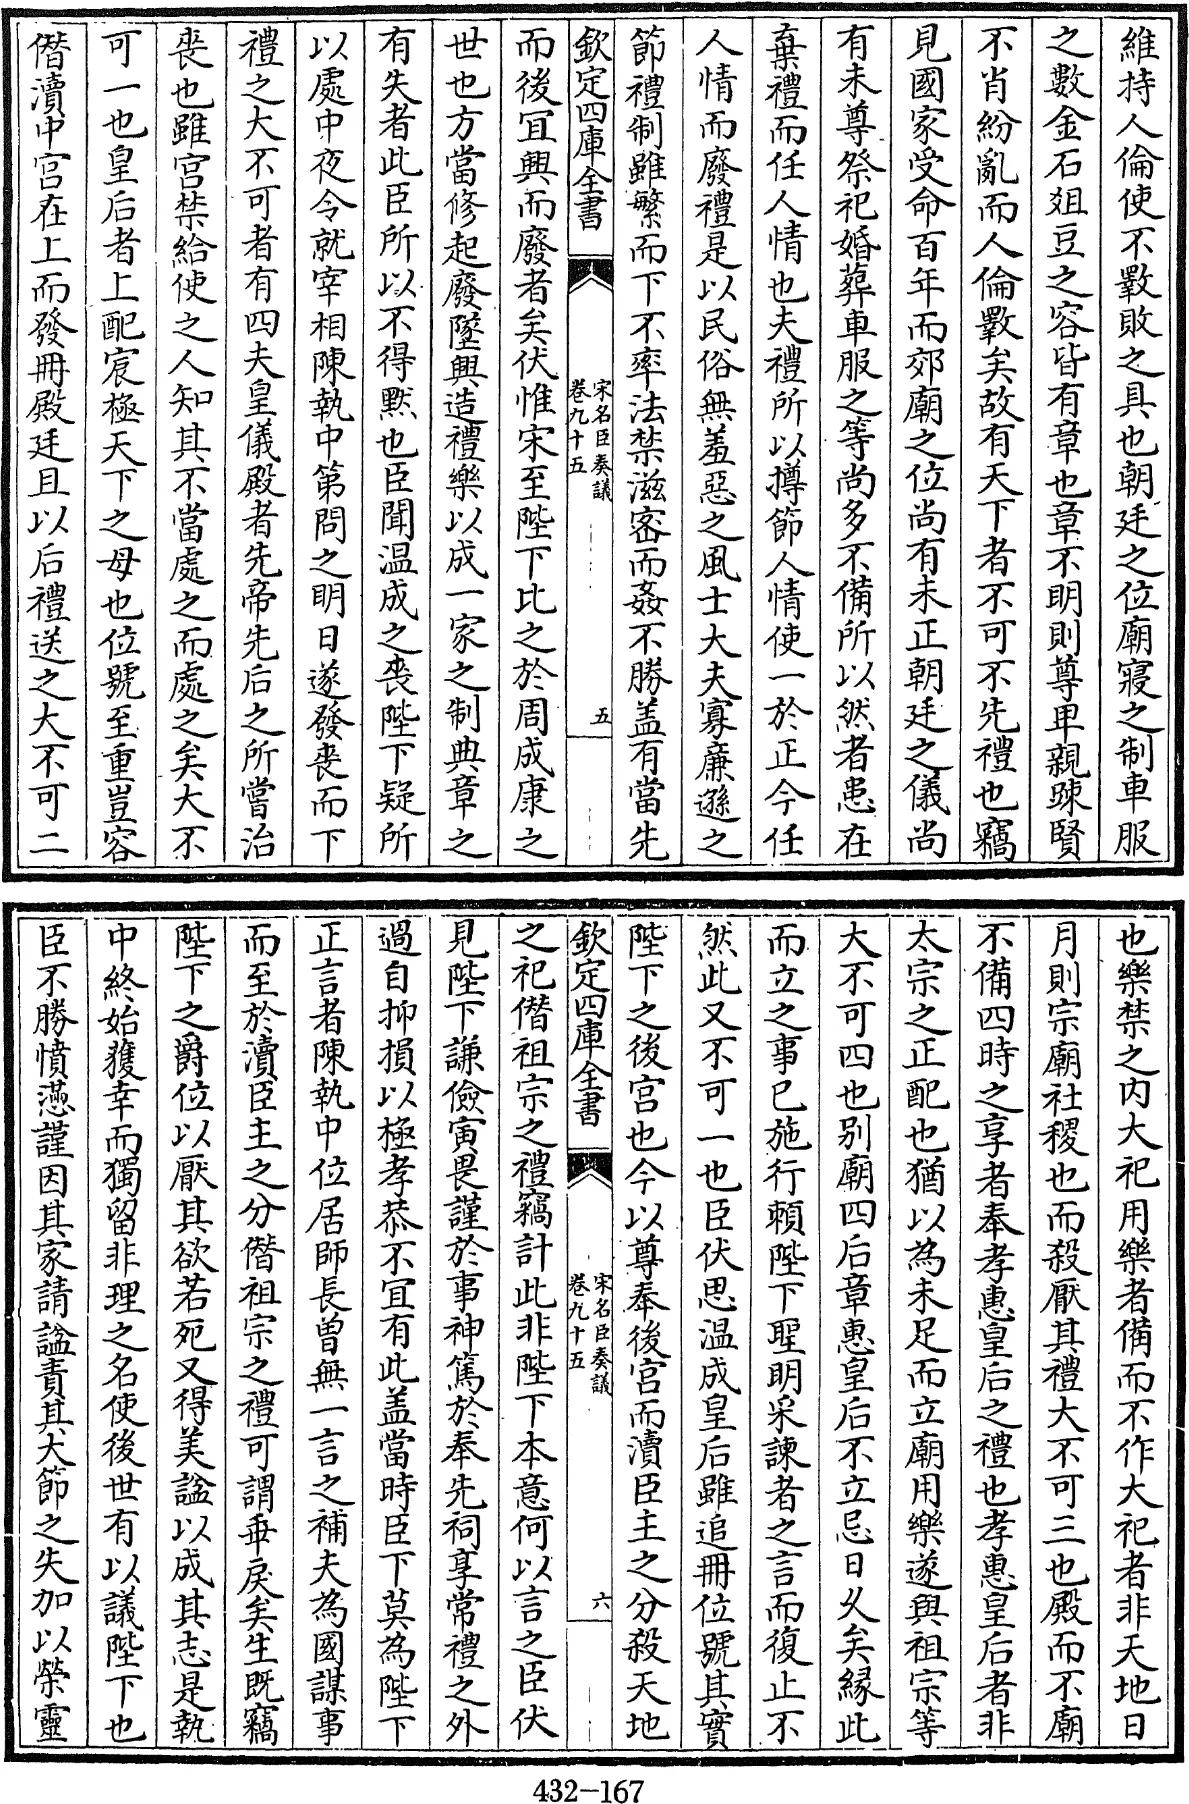 維持人倫使不斁敗之具也朝廷之位廟寢之制車服
之數金石爼豆之容皆有章也章不明則尊卑親踈賢
不肖紛亂而人倫斁矣故有天下者不可不先禮也竊
見國家受命百年而郊廟之位尚有未正朝廷之儀尚
有未尊祭祀婚葬車服之等尚多不備所以然者患在
棄禮而任人情也夫禮所以撙節人情使一於正今任
人情而廢禮是以民俗無羞惡之風士大夫寡廉遜之
節禮制雖繁而下不率法禁滋密而姦不勝盖有當先
欽定四庫全書
宋名臣奏議
卷九十五
五
而後宜興而廢者矣伏惟宋至陛下比之於周成康之
世也方當修起廢墜興造禮樂以成一家之制典章之
有失者此臣所以不得默也臣聞温成之喪陛下疑所
以處中夜令就宰相陳執中第問之明日遂發喪而下
禮之大不可者有四夫皇儀殿者先帝先后之所嘗治
喪也雖宫禁給使之人知其不當處之而處之矣大不
可一也皇后者上配宸極天下之母也位號至重豈容
僭瀆中宫在上而發冊殿廷且以后禮送之大不可二
也樂禁之内大祀用樂者備而不作大祀者非天地日
月則宗廟社稷也而殺厭其禮大不可三也殿而不廟
不備四時之享者奉孝惠皇后之禮也孝惠皇后者非
太宗之正配也猶以為未足而立廟用樂遂與祖宗等
大不可四也别廟四后章惠皇后不立忌日乆矣緣此
而立之事已施行頼陛下聖明采諫者之言而復止不
然此又不可一也臣伏思温成皇后雖追冊位號其實
陛下之後宫也今以尊奉後宫而瀆臣主之分殺天地
欽定四庫全書
宋名臣奏議
卷九十五
六
之祀僭祖宗之禮竊計此非陛下本意何以言之臣伏
見陛下謙儉寅畏謹於事神篤於奉先祠享常禮之外
過自抑損以極孝恭不宜有此盖當時臣下莫為陛下
正言者陳執中位居師長曾無一言之補夫為國謀事
而至於瀆臣主之分僭祖宗之禮可謂乖戾矣生既竊
陛下之爵位以厭其欲若死又得美諡以成其志是執
中終始獲幸而獨留非理之名使後世有以議陛下也
臣不勝憤懣謹因其家請諡責其大節之失加以榮靈
432-167